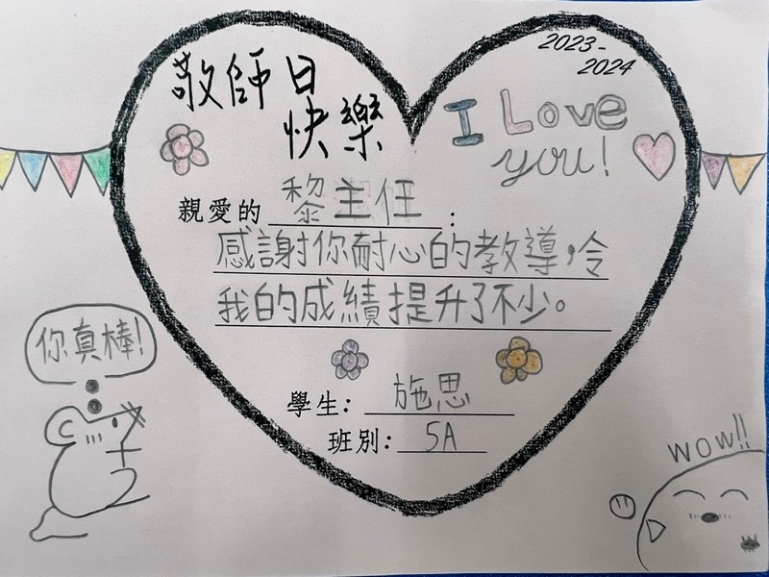 敬師日
快樂
2023-
2024
I Love
you!
親愛的 黎主任 :
感謝你耐心的教導，令
我的成績提升了不少。
你真棒!
學生: 施思
班別: 5A
wow!!